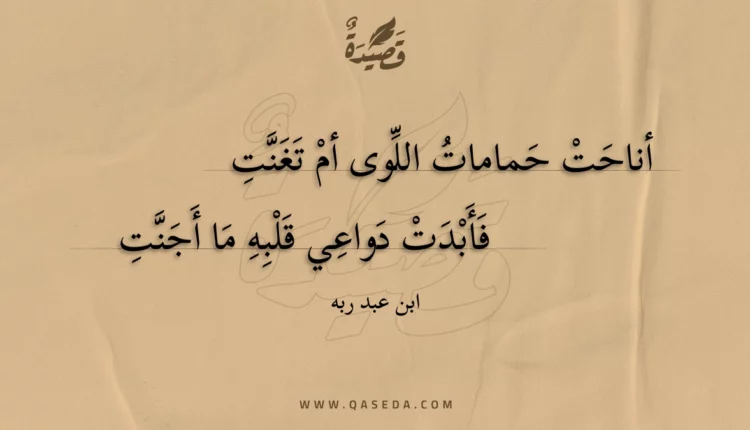 قَصِيدَةٌ
أناحَتْ حَماماتُ اللِّوى أمْ تَغَنَّتِ
فَأَبْدَتْ دَواعِي قَلْبِهِ مَا أَجَنَّتِ
ابن عبد ربه
WWW.QASEDA.COM